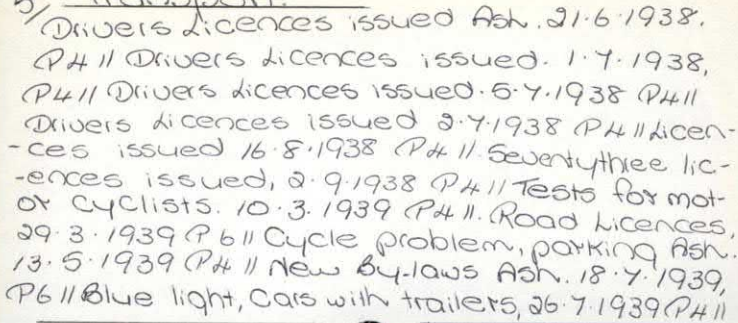 5/ Transport.
Drivers Licences issued Ash. 21.6.1938.
P4 // Drivers Licences issued. 1.7.1938,
P4 // Drivers Licences issued. 5.7.1938 P4 //
Drivers Licences issued 2.7.1938 P4 // Licen-
-ces issued 16.8.1938 P4 // Seventythree lic-
-ences issued, 2.9.1938 P4 // Tests for mot-
or cyclists. 10.3.1939 P4 //. Road Licences,
29.3.1939 P6 // Cycle problem, parking Ash.
13.5.1939 P4 // New By-laws Ash. 18.7.1939,
P6 // Blue light, Cars with trailers, 26.7.1939 P4 //